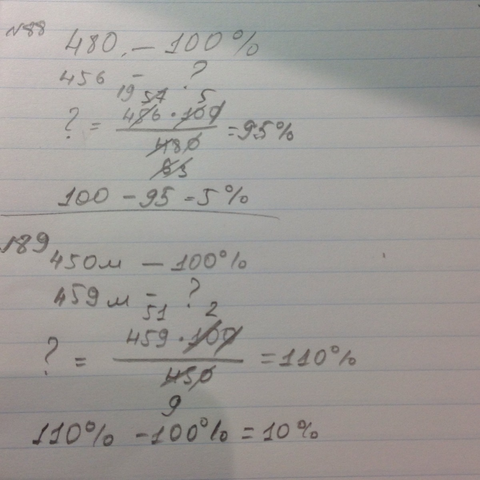 №88
480 - 100%
456 - ?
19 57 5
? = 456 · 100 / 480 = 95%
100 - 95 = 5%
189
450м - 100%
459м - ?
51 2
? = 459 · 100 / 450 = 110%
9
110% - 100% = 10%